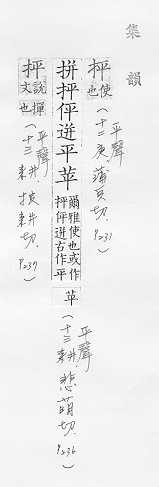 集韻
抨使也(十二庚、蒲兵切、P231)平聲
拼抨伻迸平苹爾雅使也或作抨伻迸古作平苹(十三耕、悲萌切、P236)平聲
抨說文撣也(十三耕、披耕切、P237)平聲